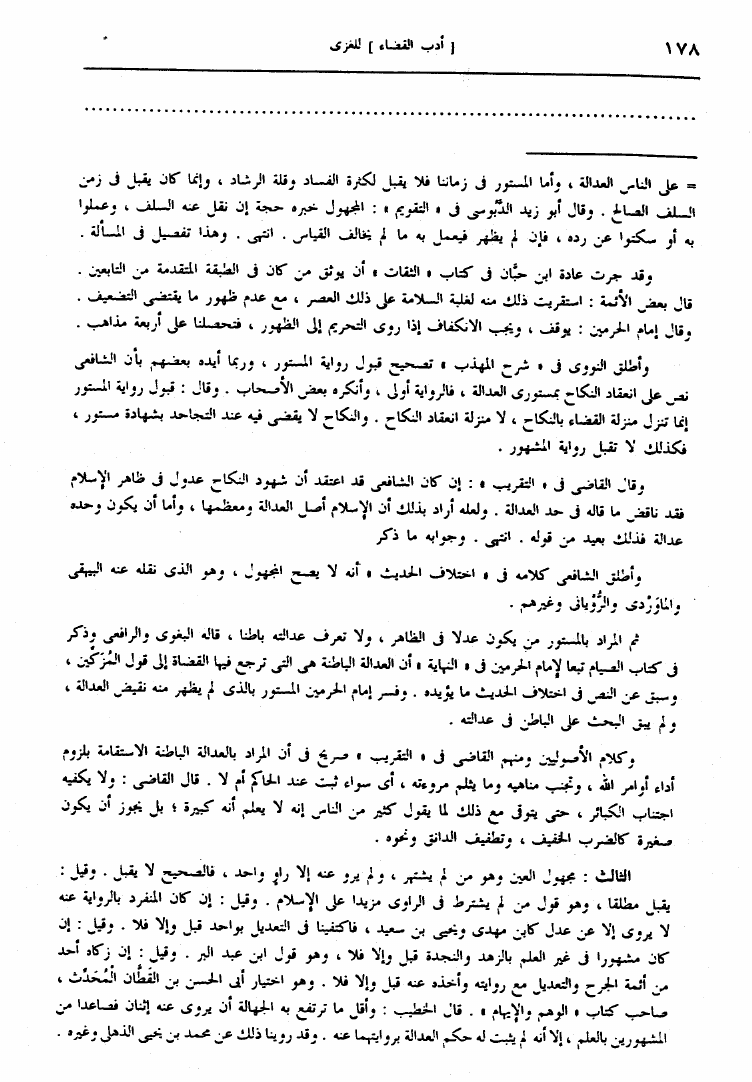 ١٧٨
[ أدب القضاء ] للغزى
= على الناس العدالة ، وأما المستور فى زماننا فلا يقبل لكثرة الفساد وقلة الرشاد ، وإنما كان يقبل فى زمن
السلف الصالح . وقال أبو زيد الدَّبُوسى فى « التقويم » : المجهول خبره حجة إن نقل عنه السلف ، وعملوا
به أو سكتوا عن رده ، فإن لم يظهر فيعمل به ما لم يخالف القياس . انتهى . وهذا تفصيل فى المسألة .
وقد جرت عادة ابن حبَّان فى كتاب « الثقات » أن يوثق من كان فى الطبقة المتقدمة من التابعين .
قال بعض الأئمة : استقريت ذلك منه لغلبة السلامة على ذلك العصر ، مع عدم ظهور ما يقتضى التضعيف .
وقال إمام الحرمين : يوقف ، ويجب الانكفاف إذا روى التحريم إلى الظهور ، فتحصلنا على أربعة مذاهب .
وأطلق النووى فى « شرح المهذب » تصحيح قبول رواية المستور ، وربما أيده بعضهم بأن الشافعى
نص على انعقاد النكاح بمستورى العدالة ، فالرواية أولى ، وأنكره بعض الأصحاب . وقال : قبول رواية المستور
إنما تنزل منزلة القضاء بالنكاح ، لا منزلة انعقاد النكاح . والنكاح لا يقضى فيه عند التجاحد بشهادة مستور ،
فكذلك لا تقبل رواية المشهور .
وقال القاضى فى « التقريب » : إن كان الشافعى قد اعتقد أن شهود النكاح عدول فى ظاهر الإسلام
فقد ناقض ما قاله فى حد العدالة . ولعله أراد بذلك أن الإسلام أصل العدالة ومعظمها ، وأما أن يكون وحده
عدالة فذلك بعيد من قوله . انتهى . وجوابه ما ذكر
وأطلق الشافعى كلامه فى « اختلاف الحديث » أنه لا يصح المجهول ، وهو الذى نقله عنه البيهقى
والمَاوَرْدى والرُّويانى وغيرهم .
ثم المراد بالمستور من يكون عدلا فى الظاهر ، ولا تعرف عدالته باطنا ، قاله البغوى والرافعى وذكر
فى كتاب الصيام تبعا لإمام الحرمين فى « النهاية » أن العدالة الباطنة هى التى ترجع فيها القضاة إلى قول المُزَكِّين ،
وسبق عن النص فى اختلاف الحديث ما يؤيده . وفسر إمام الحرمين المستور بالذى لم يظهر منه نقيض العدالة ،
ولم يبق البحث على الباطن فى عدالته .
وكلام الأصوليين ومنهم القاضى فى « التقريب » صريح فى أن المراد بالعدالة الباطنة الاستقامة بلزوم
أداء أوامر الله ، وتجنب مناهيه وما يثلم مروءته ، أى سواء ثبت عند الحاكم أم لا . قال القاضى : ولا يكفيه
اجتناب الكبائر ، حتى يتوقى مع ذلك لما يقول كثير من الناس إنه لا يعلم أنه كبيرة ؛ بل يجوز أن يكون
صغيرة كالضرب الخفيف ، وتطفيف الدانق ونحوه .
الثالث : مجهول العين وهو من لم يشتهر ، ولم يرو عنه إلا راوٍ واحد ، فالصحيح لا يقبل . وقيل :
يقبل مطلقا ، وهو قول من لم يشترط فى الراوى مزيدا على الإسلام . وقيل : إن كان المنفرد بالرواية عنه
لا يروى إلا عن عدل كابن مهدى ويحيى بن سعيد ، فاكتفينا فى التعديل بواحد قبل وإلا فلا . وقيل : إن
كان مشهورا فى غير العلم بالزهد والنجدة قبل وإلا فلا ، وهو قول ابن عبد البر . وقيل : إن زكاه أحد
من أئمة الجرح والتعديل مع روايته وأخذه عنه قبل وإلا فلا . وهو اختيار أبى الحسن بن القَطَّان المُحَدِّث ،
صاحب كتاب « الوهم والإيهام » . قال الخطيب : وأقل ما ترتفع به الجهالة أن يروى عنه إثنان فصاعدا من
المشهورين بالعلم ، إلا أنه لم يثبت له حكم العدالة بروايتهما عنه . وقد روينا ذلك عن محمد بن يحيى الذهلى وغيره .